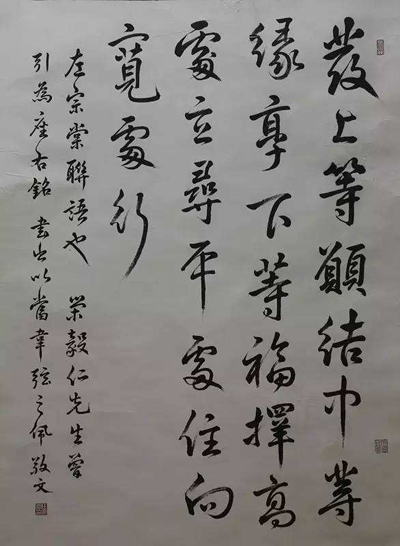 發上等願結中等
緣享下等福擇高
處立尋平處住向
寬處行
左宗棠聯語也 榮毅仁先生曾
引為座右銘 書此以當韋弦之佩 敬文